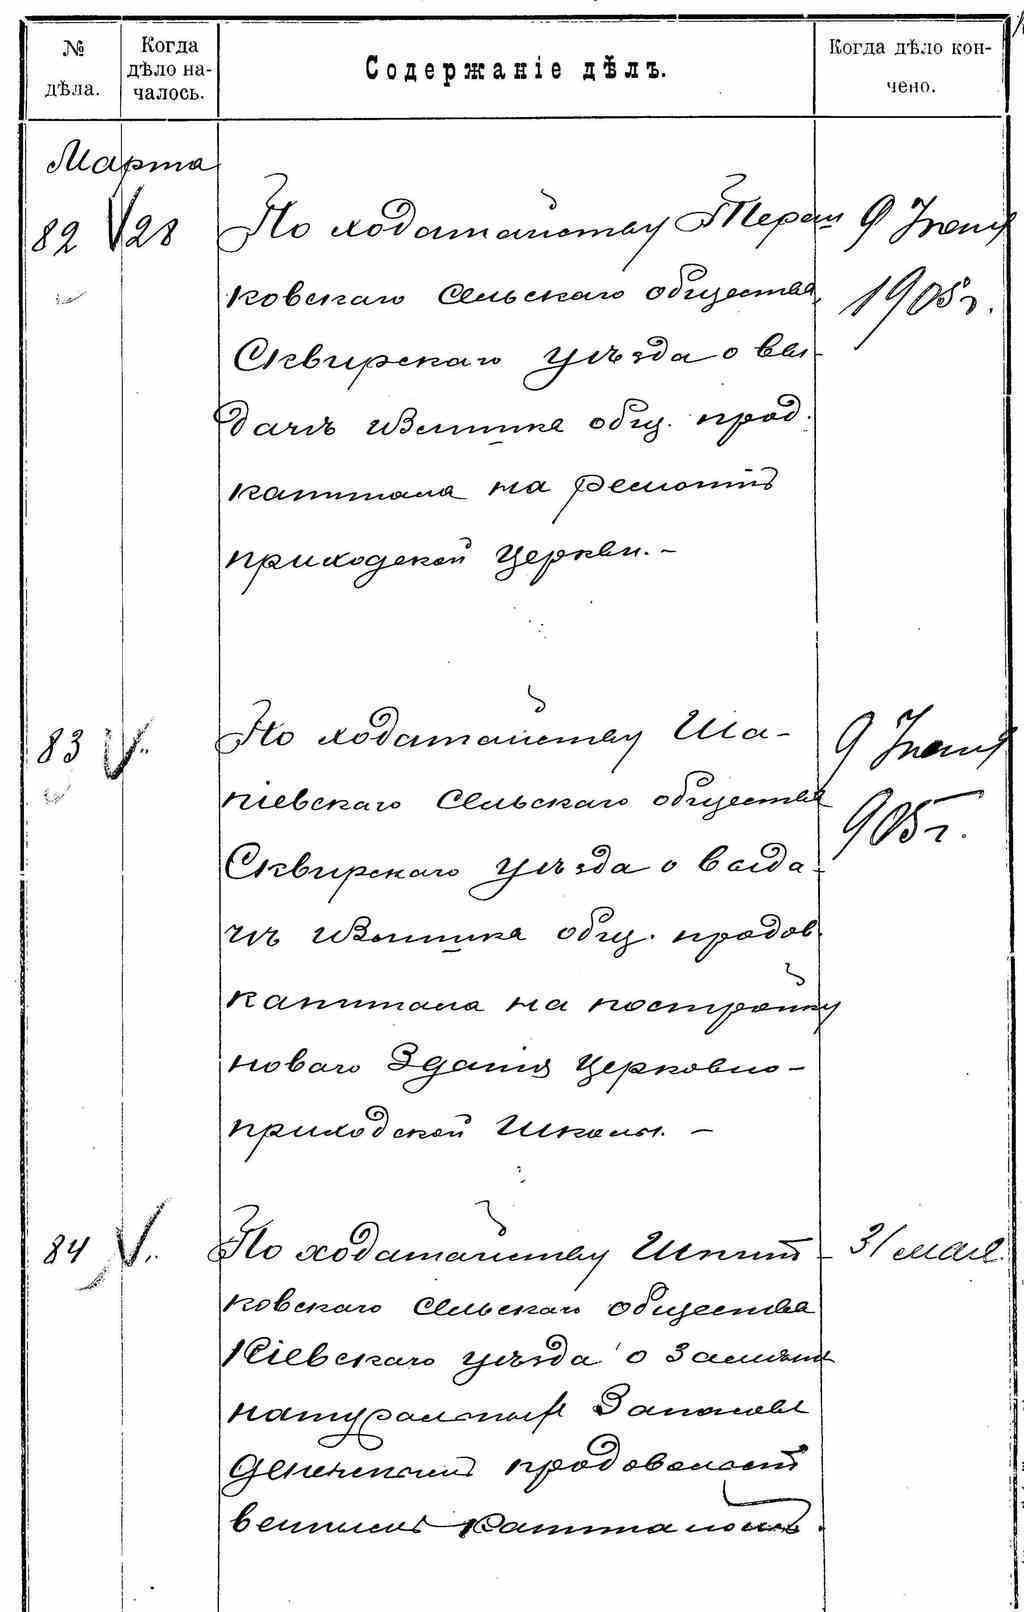 № дѣла.
Когда дѣло на-
чалось.
Содержаніе дѣлъ.
Когда дѣло кон-
чено.
Марта
82 28 По ходатайству Тереш 9 Іюня
ковскаго сельскаго общества 1905 г.
Сквирскаго уѣзда о вы-
дачѣ избытка общ. прод.
капитала на ремонтъ
приходской церкви. -
83 По ходатайству Ша- 9 Іюня
піевскаго сельскаго общества 905 г.
Сквирскаго уѣзда о выда-
чѣ общ. продов.
капитала на постройку
новаго зданія церковно-
приходской школы. -
84 По ходатайству Шпит- 31 мая
ковскаго сельскаго общества
Кіевскаго уѣзда о замѣнѣ
натуральных запасов
денежным продовольст
венным капиталомъ.